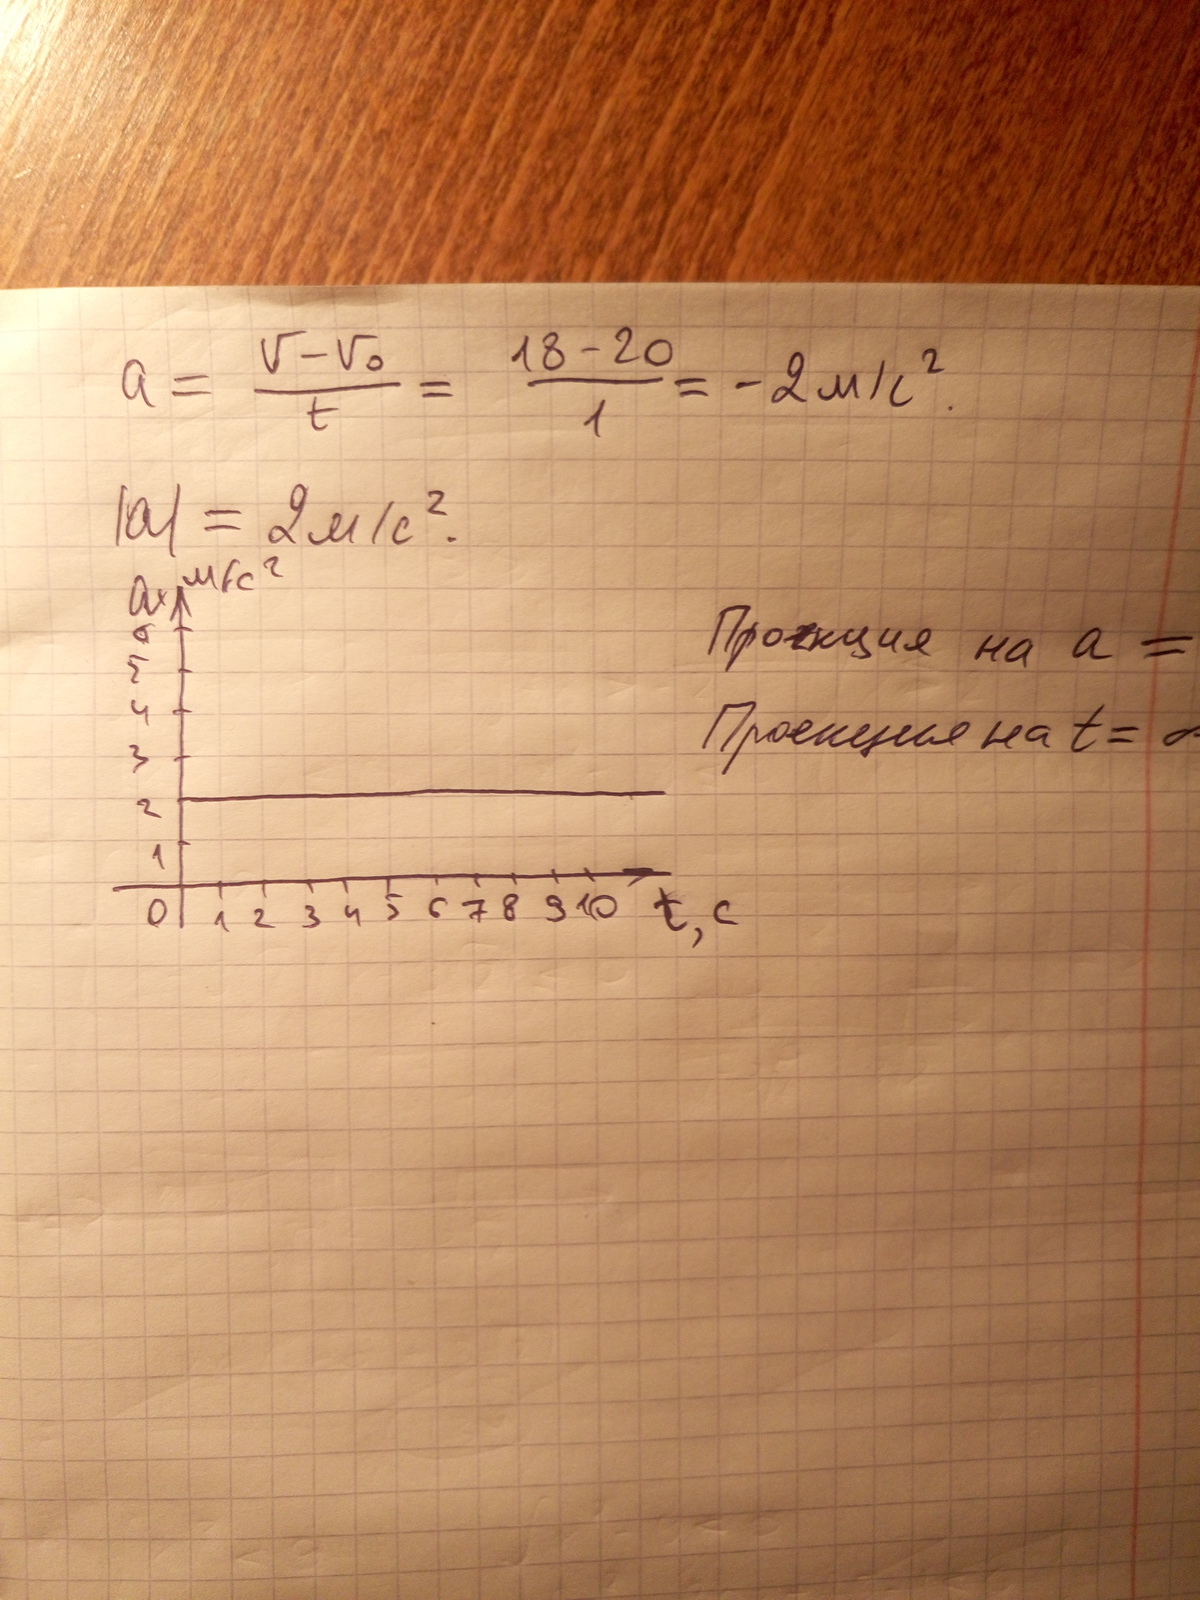 a = (v - v₀)/t = (18 - 20)/1 = -2 м/с².
|a| = 2 м/с².
aₓ м/с²
6
5
4
3
2
1
0 1 2 3 4 5 6 7 8 9 10 t, с
Проекция на a =
Проекция на t = ∞